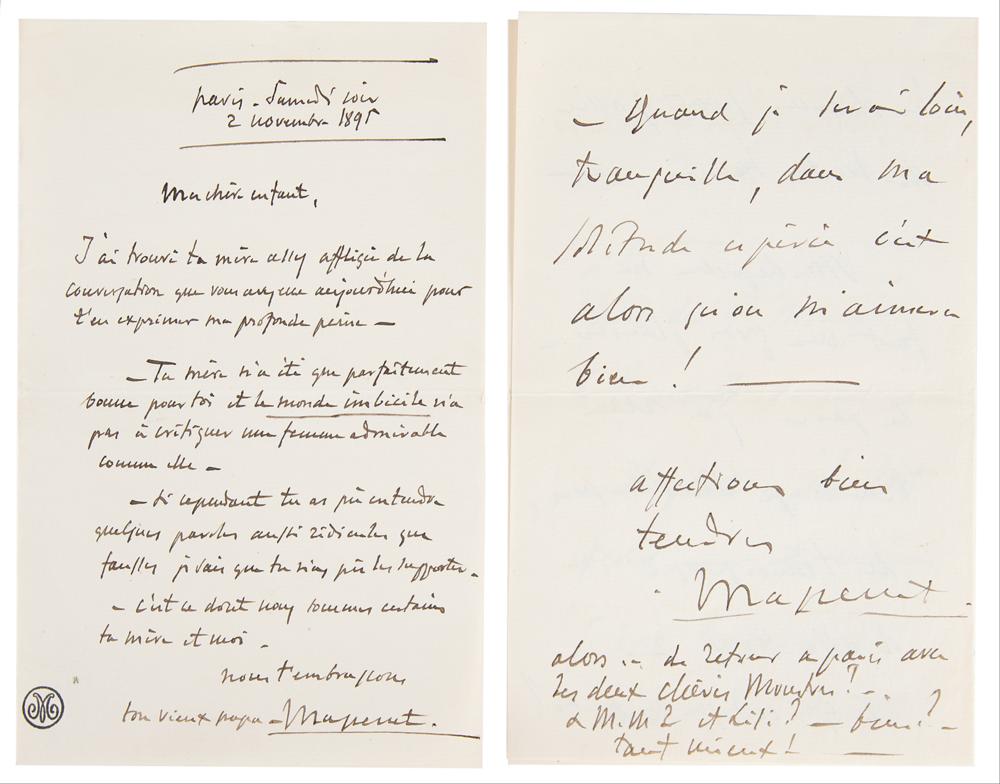 Paris - Samedi soir
2 novembre 1895
Ma chère enfant,
J'ai trouvé ta mère assez affligée de la
conversation que vous avez eue aujourd'hui pour
t'en exprimer ma profonde peine —
— Ta mère n'a été que parfaitement
bonne pour toi et le monde imbécile n'a
pas à critiquer une femme admirable
comme elle —
— Si cependant tu as pu entendre
quelques paroles aussi ridicules que
fausses je sais que tu n'as pu les supporter -
- c'est ce dont nous sommes certains
ta mère et moi -
nous t'embrassons
ton vieux papa - Massenet.
M
— Quand je serai loin,
tranquille, dans ma
solitude espérée c'est
alors qu'on m'aimera
bien ! —
affections bien
tendres
Massenet.
alors .. de retour à paris avec
les deux chéris Monstres? -
& M.M 2 et Lili? — bien? -
tant mieux ! —